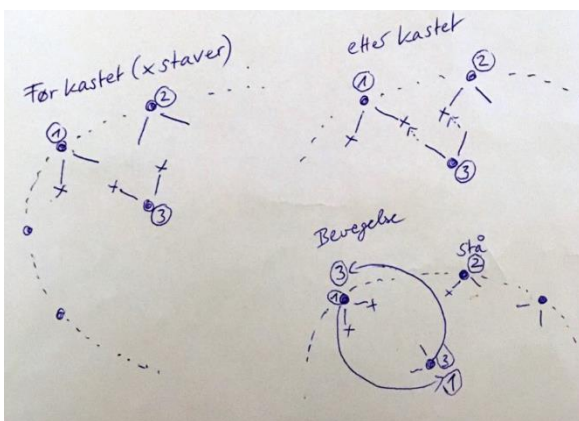 Før kastet (x staver)
1
2
3
etter kastet
1
2
3
Bevegelse
stå
3
2
1
3
1